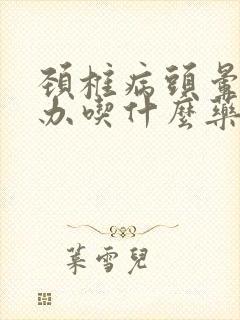 頚椎病頭暈
办喫什麼藥
葉雪兒